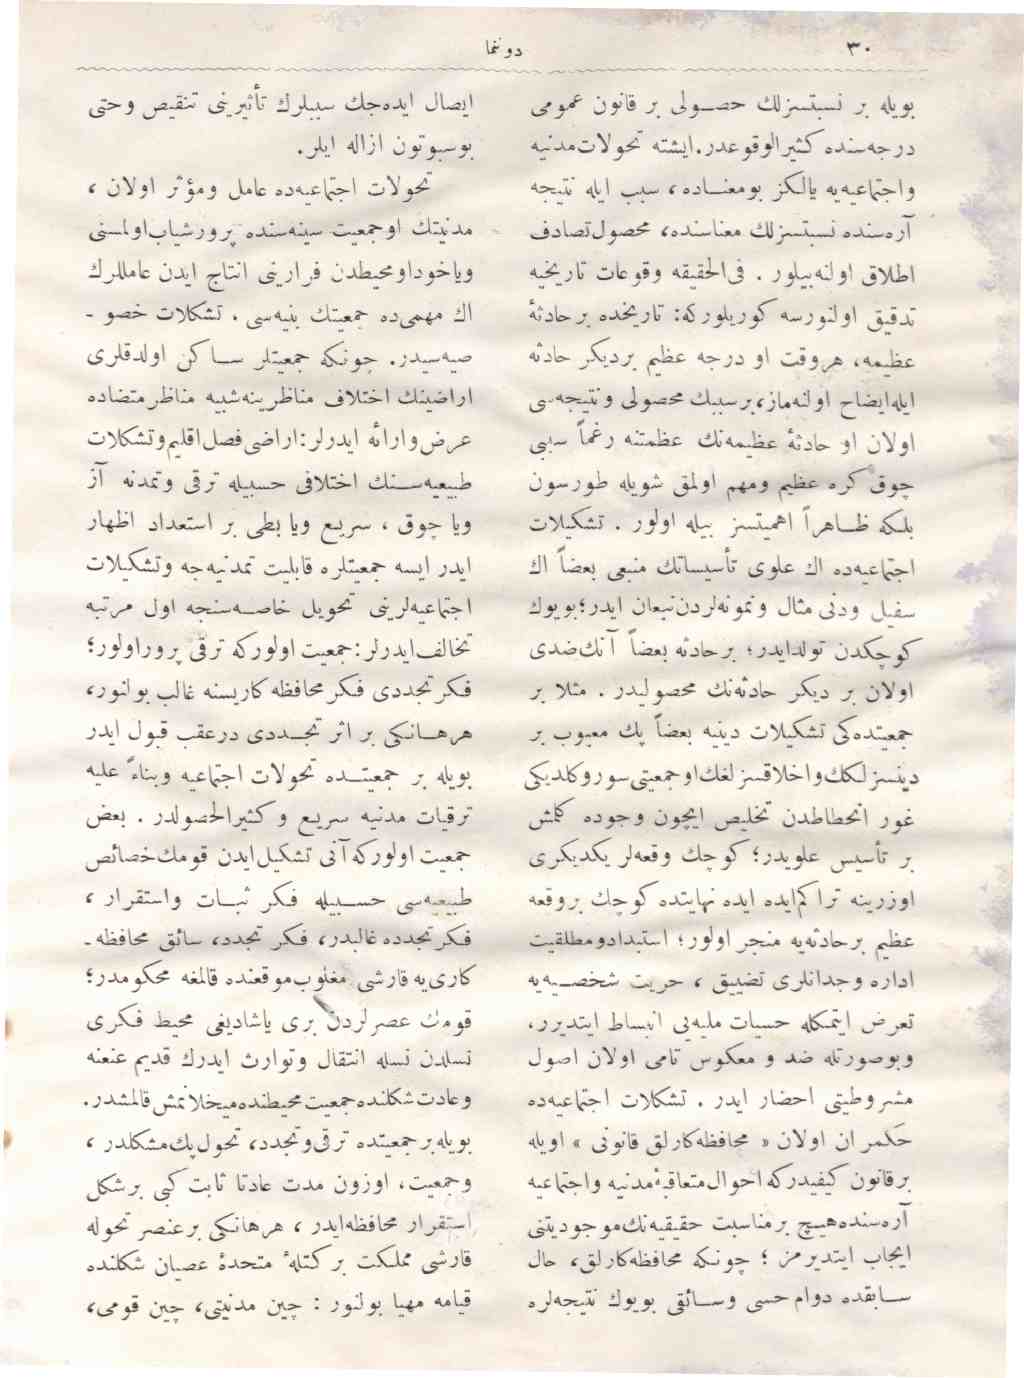 ٣٠
دونما
بويله بر نسبتسزلك حصولی بر قانون عمومی
درجه‌سنده كثيرالوقوعدر. ايشته تحولات مدنيه
واجتماعيه‌يه يالكز بومعناده، سبب ايله نتيجه
آره‌سنده نسبتسزلك معناسنده، محصول تصادف
اطلاق اولنه‌بيلور . فی‌الحقيقه وقوعات تاريخيه
تدقيق اولنورسه كوريلوركه: تاريخده بر حادثهٔ
عظيمه، هروقت او درجه عظيم برديكر حادثه
ايله‌ايضاح اولنه‌ماز، برسببك محصولی ونتيجه‌سی
اولان او حادثهٔ عظيمه‌نك عظمتنه رغماً سببی
چوق كره عظيم ومهم اولمق شويله طورسون
بلكه ظاهراً اهميتسز بيله اولور . تشكيلات
اجتماعيه‌ده اك علوی تأسيساتك منبعی بعضاً اك
سفيل ودنی مثال ونمونه‌لردن نبعان ايدر؛ بويوك
كوچكدن تولدايدر؛ برحادثه بعضاً آنك ضدی
اولان بر ديكر حادثه‌نك محصوليدر . مثلا بر
جمعيتده‌كی تشكيلات دينيه بعضاً پك معيوب بر
دينسزلكك واخلاقسزلغك‌اوجمعيتی سوروكلديكی
غور انحطاطدن تخليص ايچون وجوده كلمش
بر تأسيس علويدر؛ كوچك وقعه‌لر يكديكری
اوزرينه تراكم‌ايده ايده نهايتده كوچك بروقعه
عظيم برحادثه‌يه منجر اولور؛ استبدادومطلقيت
اداره وجدانلری تضييق ، حريت شخصيه‌يه
تعرض ايتمكله حسيات مليه‌يی انبساط ايتديرر،
وبوصورتله ضد و معكوس تامی اولان اصول
مشروطيتی احضار ايدر . تشكلات اجتماعيه‌ده
حكمران اولان « محافظه‌كارلق قانونی » اويله
برقانون كيفيدركه احوال متعاقبهٔ مدنيه واجتماعيه
آره‌سنده‌هيچ برمناسبت حقيقيه‌نك موجوديتنی
ايجاب ايتديرمز ؛ چونكه محافظه‌كارلق، حال
سابقده دوام حسی وسائقی بويوك نتيجه‌لره
ايصال ايده‌جك سببلرك تأثيرينی تنقيص وحتی
بوسبوتون ازاله ايلر.
تحولات اجتماعيه‌ده عامل ومؤثر اولان ،
مدنيتك اوجمعيت سينه‌سنده پرورشياب‌اولمسنی
وياخوداومحيطدن فرارينی انتاج ايدن عامللرك
اك مهمی‌ده جمعيتك بنيه‌سی . تشكلات خصو -
صيه‌سيدر. چونكه جمعيتلر ساكن اولدقلری
اراضينك اختلاف مناظرينه‌شبيه مناظرمتضاده
عرض وارائه ايدرلر: اراضی فصل‌اقليم‌وتشكلات
طبيعيه‌سنك اختلافی حسبيله ترقی وتمدنه آز
ويا چوق ، سريع ويا بطی بر استعداد اظهار
ايدر ايسه جمعيتلره قابليت تمدنيه‌جه وتشكيلات
اجتماعيه‌لرينی تحويل خاصه‌سنجه اول مرتبه
تخالف‌ايدرلر: جمعيت اولوركه ترقی پروراولور؛
فكرتجددی فكرمحافظه‌كاريسنه غالب بولنور،
هرهانكی بر اثر تجددی درعقب قبول ايدر
بويله بر جمعيتده تحولات اجتماعيه وبناءً عليه
ترقيات مدنيه سريع و كثيرالحصولدر . بعض
جمعيت اولوركه‌آنی تشكيل‌ايدن قومك‌خصائص
طبيعيه‌سی حسبيله فكر ثبات واستقرار ،
فكرتجدده غالبدر، فكر تجدد، سائق محافظه -
كاری‌يه قارشی مغلوب‌موقعنده قالمغه محكومدر؛
قومك عصرلردن بری ياشاديغی محيط فكری
نسلدن نسله انتقال وتوارث ايدرك قديم عنعنه
وعادت شكلنده‌جمعيت‌محيطنده‌ميخلانمش‌قالمشدر.
بويله‌برجمعيتده ترقی‌وتجدد، تحول‌پك‌مشكلدر ،
وجمعيت، اوزون مدت عادتا ثابت كبی برشكل
استقرار محافظه‌ايدر ، هرهانكی برعنصر تحوله
قارشی مملكت بركتلهٔ متحدهٔ عصيان شكلنده
قيامه مهيا بولنور : چين مدنيتی، چين قومی،